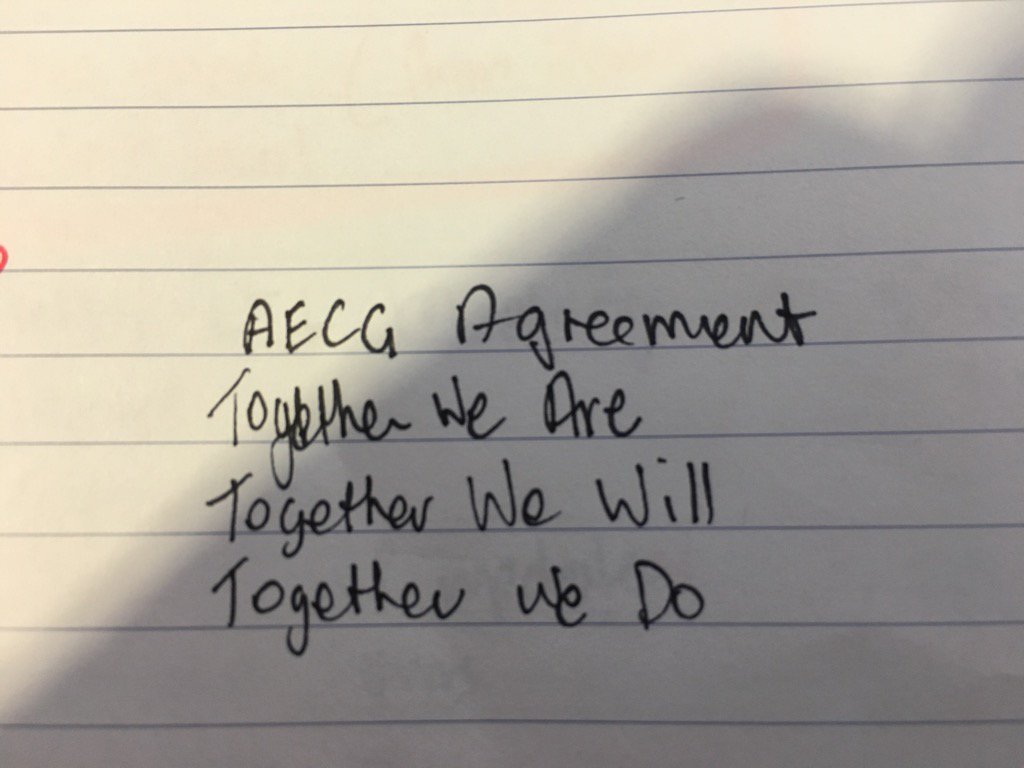 AECG Agreement
Together We Are
Together We Will
Together we Do